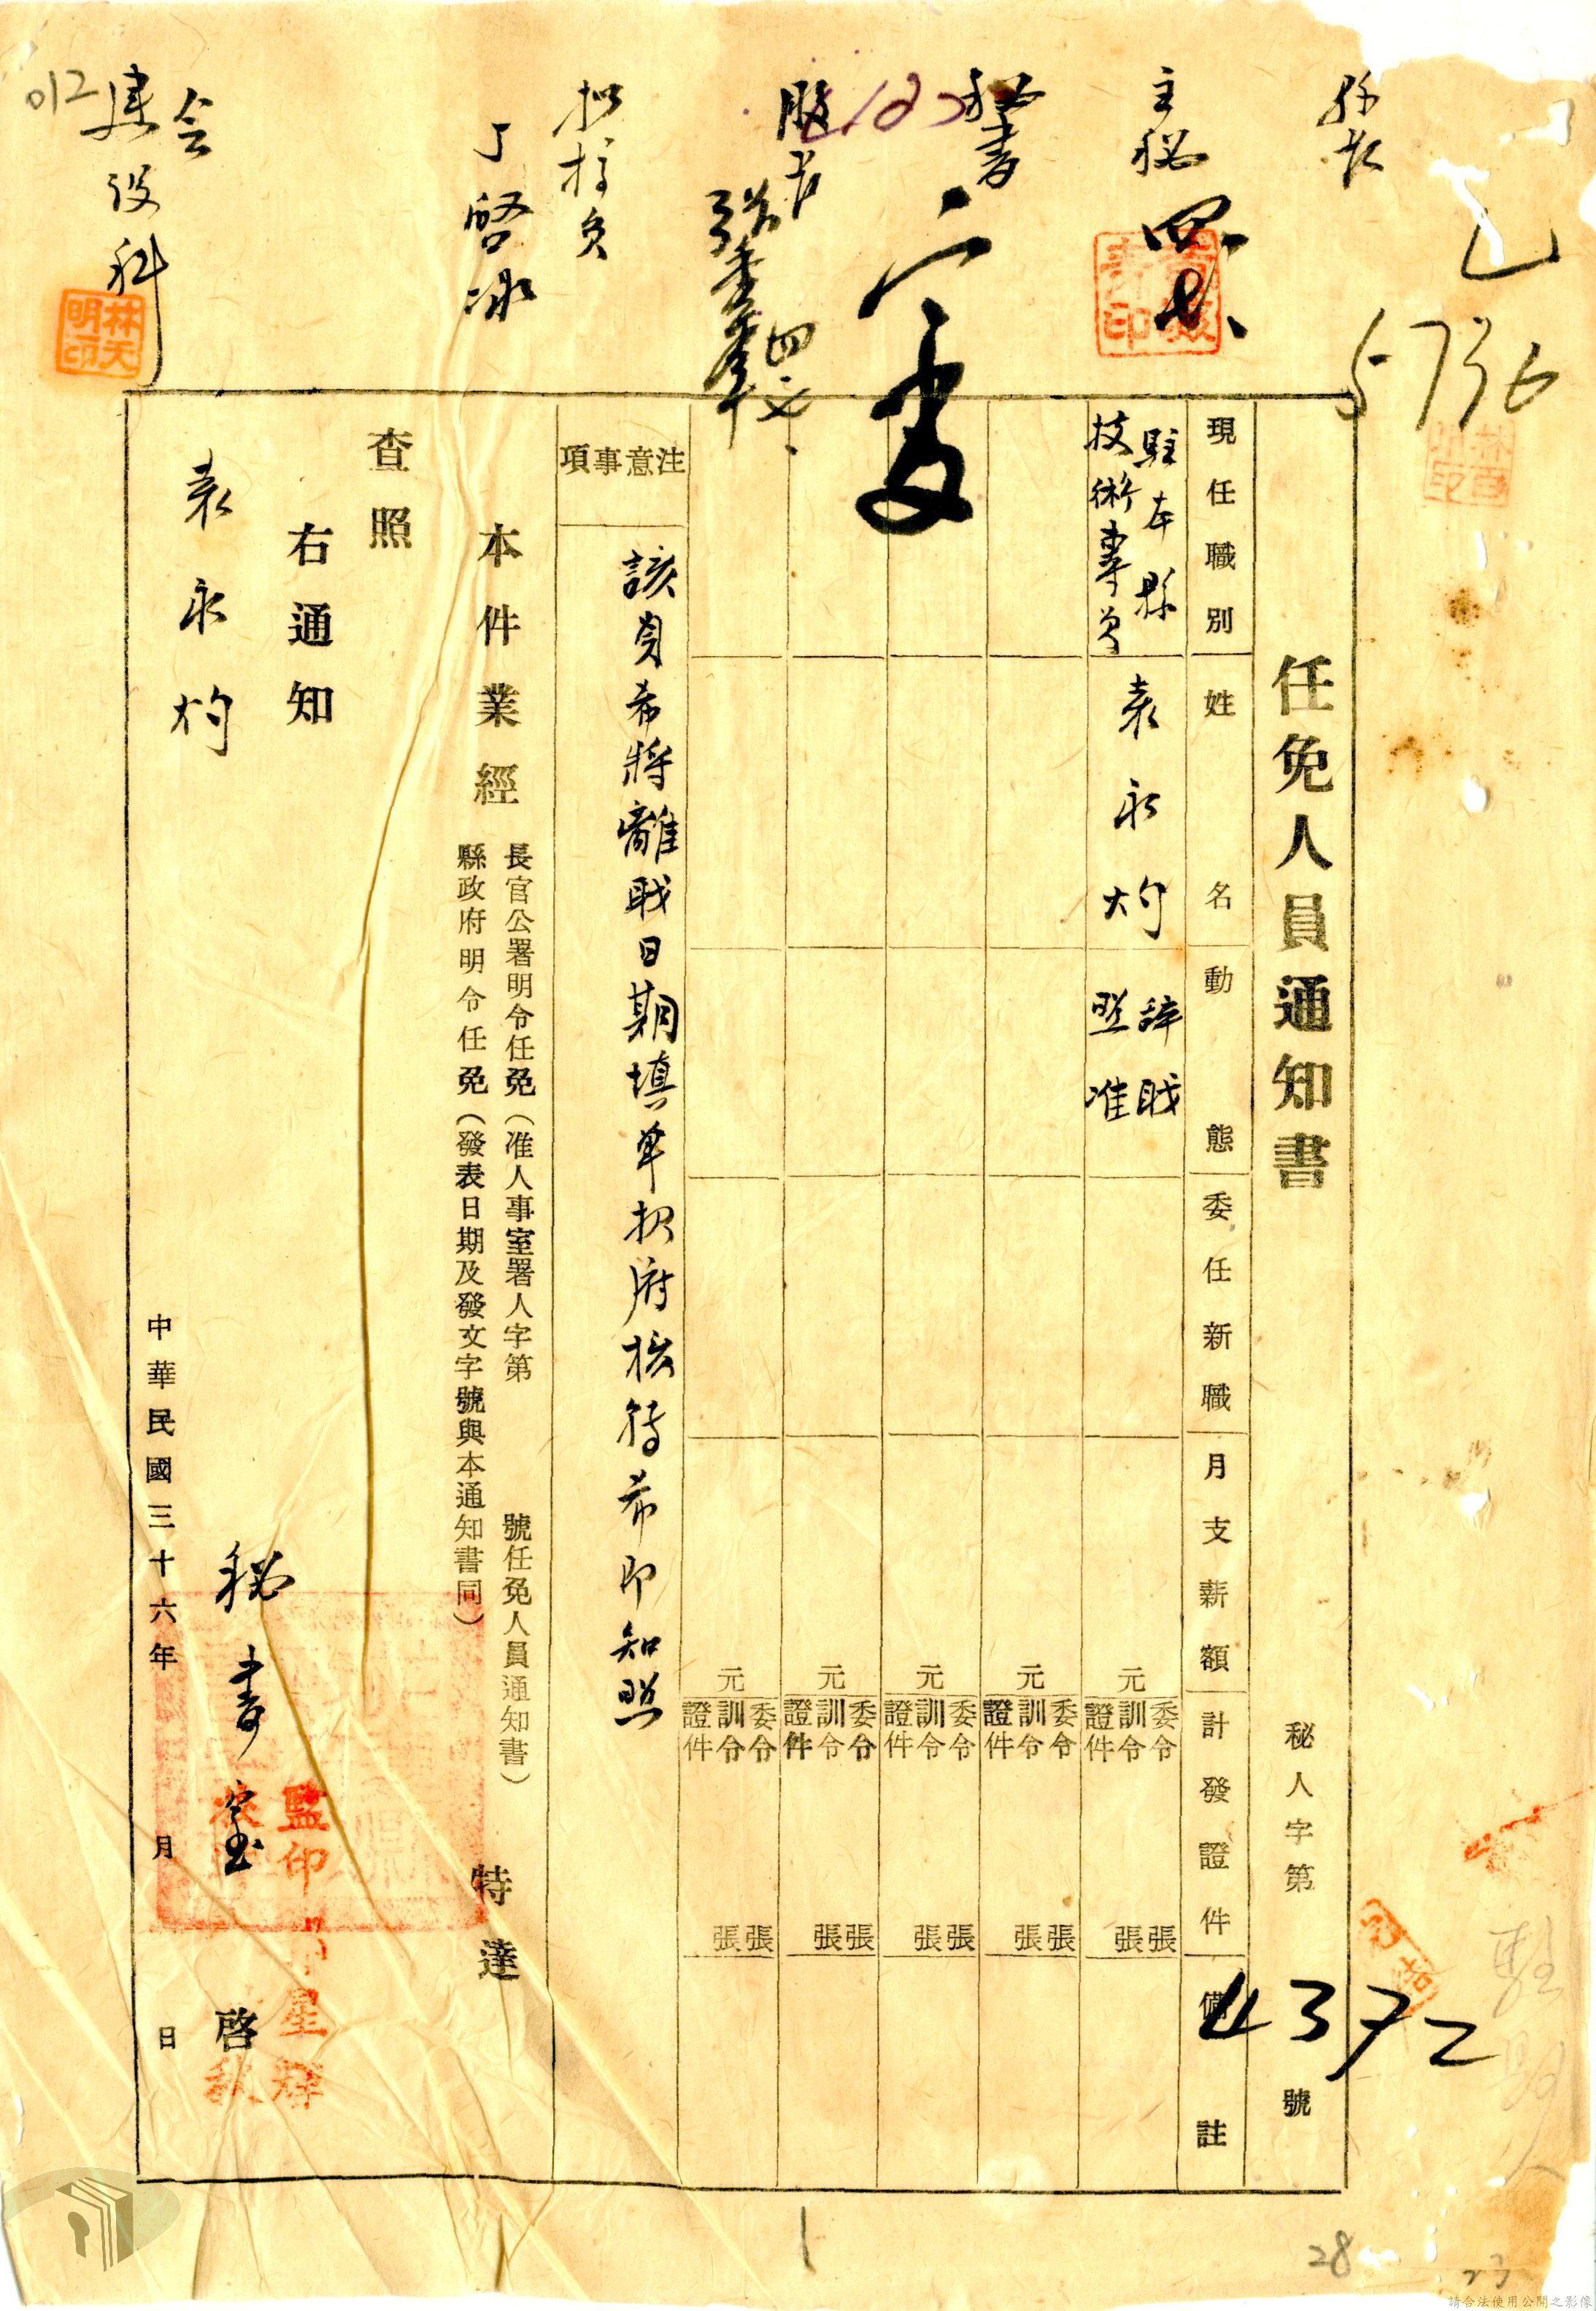 縣長
主秘
秘書
股長
擬接員
丁啓冰
會
建設科
林天明印
012
5736
任免人員通知書
秘人字第4372號
現任職別
姓名
動態
委任新職
月支薪額
計發證件
備註
駐本縣
技術專員
袁永灼
辞职
照准
元
委令 張
訓令 張
證件
元
委令 張
訓令 張
證件
元
委令 張
訓令 張
證件
元
委令 張
訓令 張
證件
元
委令 張
訓令 張
證件
注意事項
該員希將離职日期填單报府核
希即知照
本件業經
長官公署明令任免（准人事室署人字第 號任免人員通知書）
縣政府明令任免（發表日期及發文字號與本通知書同）
特達
查照
右通知
袁永灼
秘書室 啓
監印
中華民國三十六年 月 日
28
23
請合法使用公開之影像